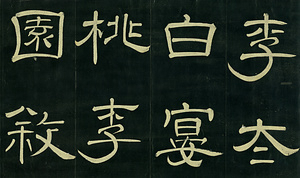 李夳
白宴
桃李
園敘